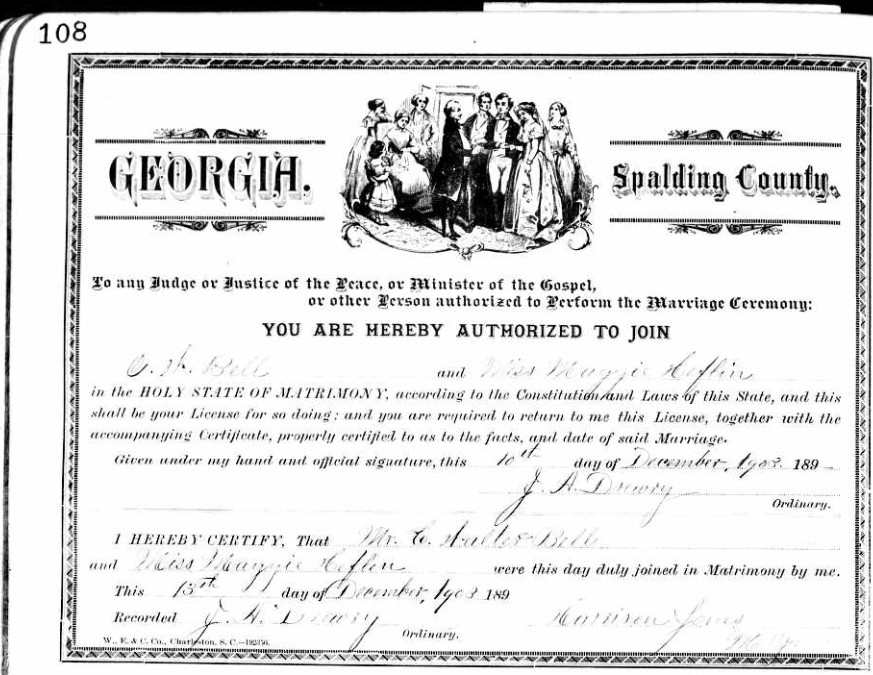 108
GEORGIA. Spalding County.
To any Judge or Justice of the Peace, or Minister of the Gospel,
or other Person authorized to Perform the Marriage Ceremony:
YOU ARE HEREBY AUTHORIZED TO JOIN
Bell and Miss Maggie Heflin
in the HOLY STATE OF MATRIMONY, according to the Constitution and Laws of this State, and this
shall be your License for so doing; and you are required to return to me this License, together with the
accompanying Certificate, properly certified to as to the facts, and date of said Marriage.
Given under my hand and official signature, this 10th day of December, 1903 189
J. A. Drewry
Ordinary.
I HEREBY CERTIFY, That Mr. C. Walter Bell
and Miss Maggie Heflin were this day duly joined in Matrimony by me.
This 13th day of December, 1903 189
Recorded J. A. Drewry Ordinary. Harrison Jones
W., E. & C. Co., Charleston, S. C.